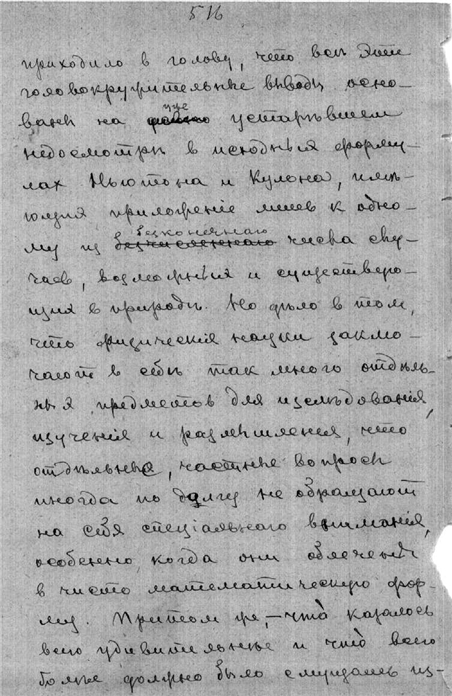 516
приходило в голову, что всѣ эти
головокружительные выводы осно-
ваны на уже устарѣвшем
недосмотрѣ в исходных форму-
лах Ньютона и Кулона, имѣ-
ющих приложеніе лишь к одно-
му из безконечнаго безчисленнаго числа слу-
чаев, возможных и существую-
щих в природѣ. Но дѣло в том,
что физическія науки заклю-
чают в себѣ так много отдѣль-
ных предметов для изслѣдованія,
изученія и размышленія, что
отдѣльные, частные вопросы
иногда по долгу не обращают
на себя спеціальнаго вниманія,
особенно, когда они облечены
в чисто математическую фор-
му. Притом же, — что казалось
всего удивительнѣе и что всего
болѣе должно было смущать из-